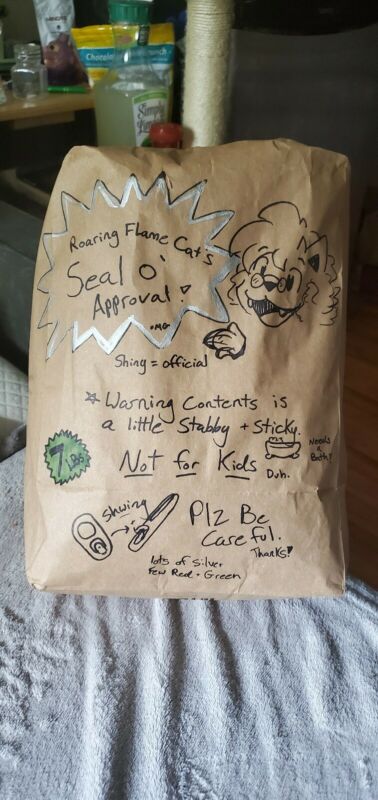 Chocola
Simply
Roaring Flame Cat's
Seal O'
Approval!
OMG
Shiny = official
Warning Contents is
a little Stabby + Sticky.
Needs
a
Bath!
7 Lbs
Not for Kids
Duh.
Shwing
Plz Be
Careful.
Thanks!
lots of Silver
Few Red + Green